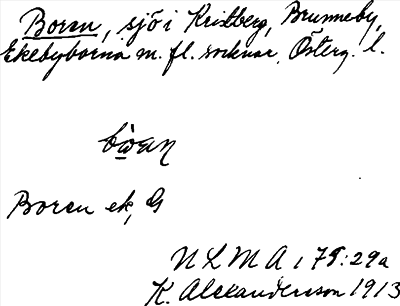 Boren, sjö i Kristberg, Brunneby,
Ekebyborna m. fl. socknar, Österg. l.
Boren ek, G
N L M A 179:29a
K. Alexandersson 1913